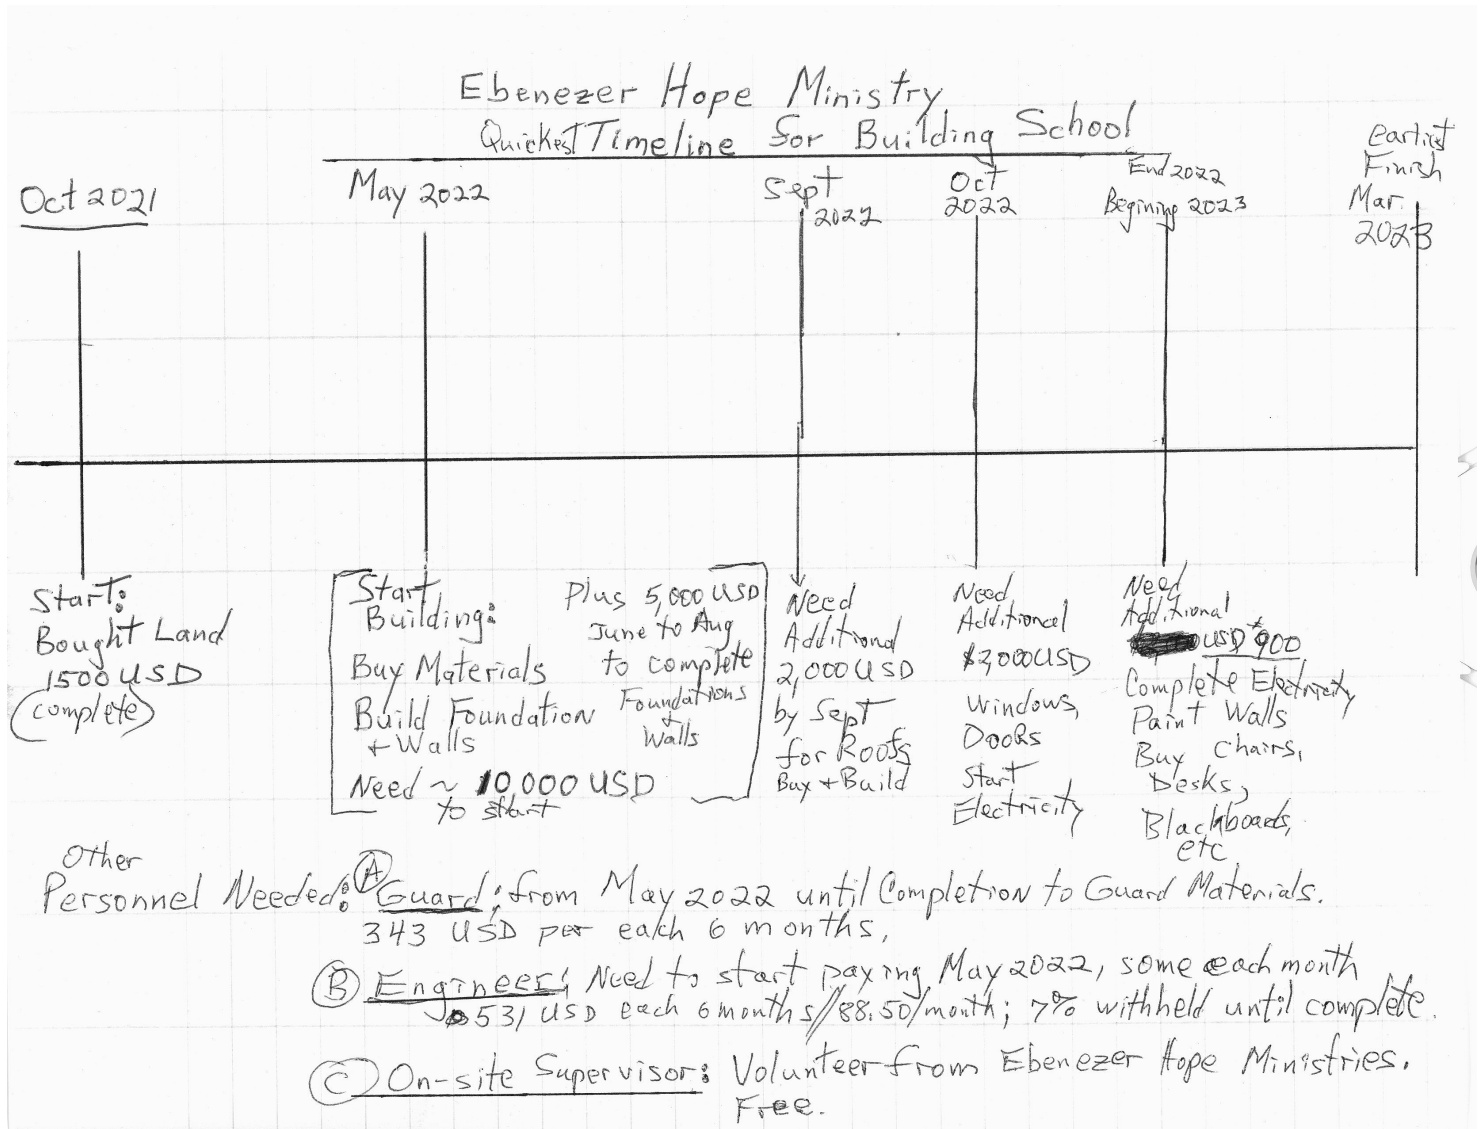 Ebenezer Hope Ministry
Quickest Timeline for Building School
Oct 2021
May 2022
Sept
2022
Oct
2022
End 2022
Begining 2023
earlist
Finish
Mar.
2023
Start:
Bought Land
1500 USD
(complete)
Start
Building:
Buy Materials
Build Foundation
+ Walls
Need ~ 10,000 USD
to start
Plus 5,000 USD
June to Aug
to complete
Foundations
+
Walls
Need
Additional
2,000 USD
by Sept
for Roofs
Buy + Build
Need
Additional
$2,000 USD
Windows,
Doors
Start
Electricity
Need
Additional
USD 900
Complete Electricity
Paint Walls
Buy Chairs,
Desks,
Blackboards,
etc
Other
Personnel Needed: A Guard: from May 2022 until Completion to Guard Materials.
343 USD per each 6 months,
B Engineer: Need to start paying May 2022, some each month
531 USD each 6 months//88.50/month; 7% withheld until complete.
C On-site Supervisor: Volunteer from Ebenezer Hope Ministries.
Free.